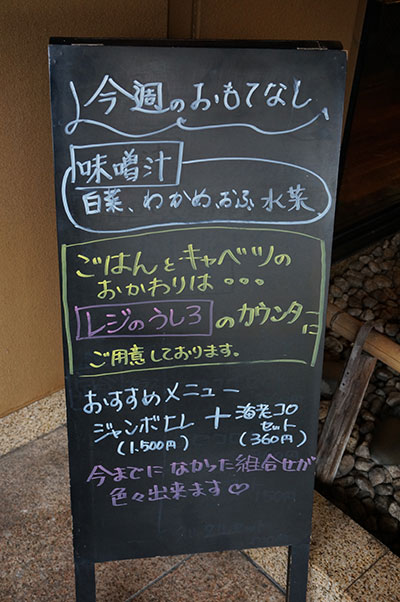 今週のおもてなし
味噌汁
白菜、わかめ、おふ、水菜
ごはんとキャベツの
おかわりは・・・
レジのうしろのカウンターに
ご用意しております。
おすすめメニュー
ジャンボヒレ+海老コロセット
(1,500円) (360円)
今までになかった組合せが
色々出来ます♡